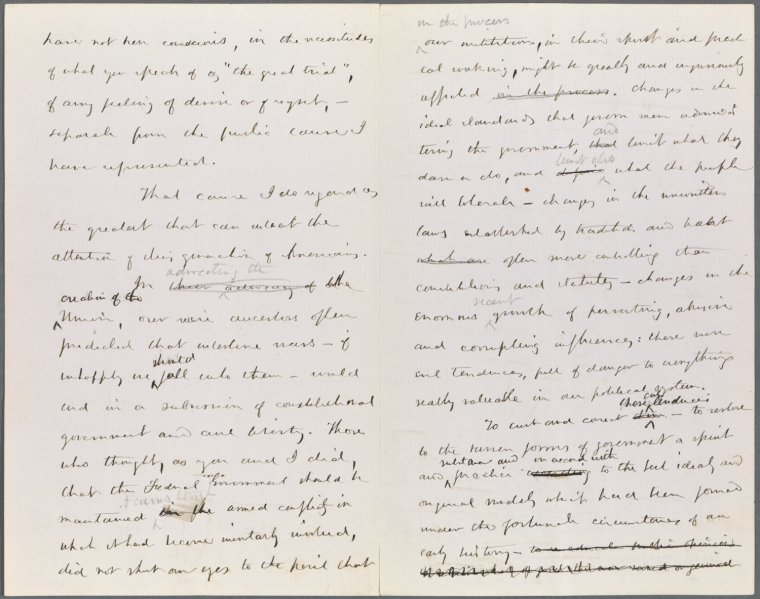 have not been conscious, in the vicissitudes
of what you speak of as "the great trial",
of any feeling of desire or of regret, –
separate from the public cause I
have represented.
That cause I do regard as
the greatest that can attract the
attention of this generation of Americans.
advocating the
In their advocacy of the
creation of the
Union, our wise ancestors often
predicted that intestine wars – if
should
unhappily we fall into them – would
end in a subversion of constitutional
government and civil liberty. Those
who thought, as you and I did,
that the Federal Government should be
maintained the armed conflict in
which it had become inevitably involved,
did not shut our eyes to the peril that
in the process
our institutions, in their spirit and practi
cal working, might be greatly and injuriously
affected in the process. Changes in the
ideal standards that govern men adminis
and
tering the government, that limit what they
limit also
dare or do, and what the people
will tolerate – changes in the unwritten
laws established by tradition and habit
which are often more controlling than
constitutions and statutes – changes in the
recent
enormous growth of perverting, abusive
and corrupting influences: these were
evil tendencies, full of danger to everything
really valuable in our political system.
evil
these tendencies
To curb and correct them – to restore
to the barren forms of government a spirit
substance and in accord with
and practice according to the best ideals and
original models which had been formed
under the fortunate circumstances of our
early history – to re-educate public opinion